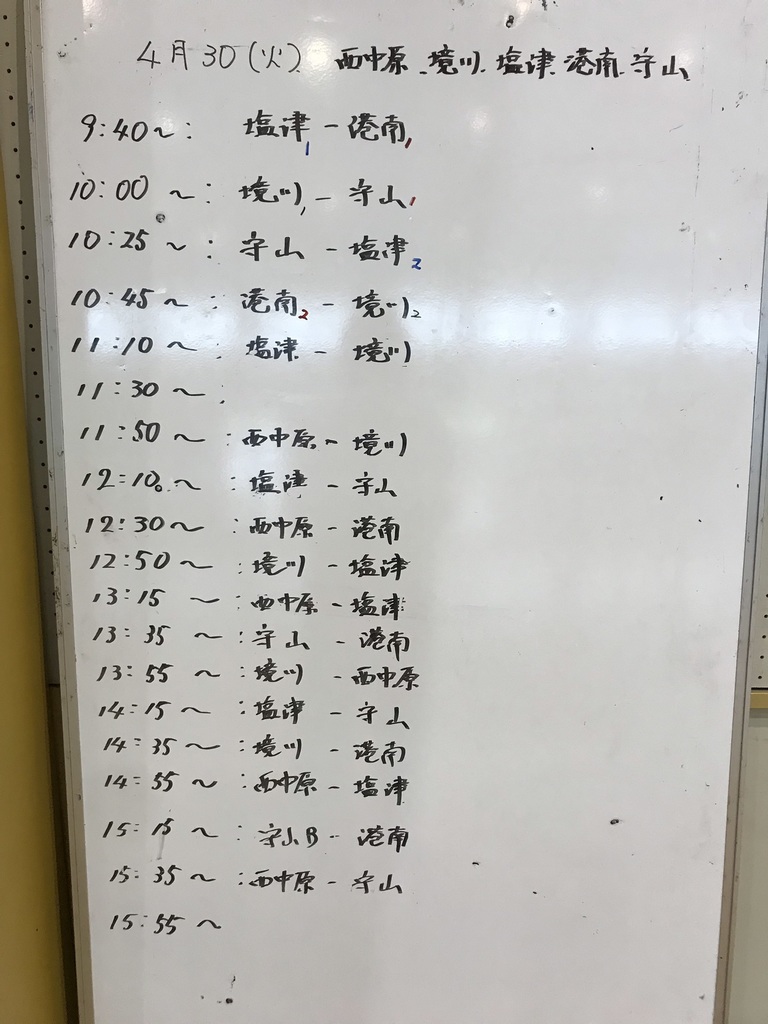 4月30(火) 西中原.境川.塩津.港南.守山
9:40～: 塩津1-港南1
10:00～: 境川1-守山1
10:25～: 守山-塩津2
10:45～: 港南2-境川2
11:10～: 塩津-境川
11:30～:
11:50～:西中原-境川
12:10.～:塩津-守山
12:30～:西中原-港南
12:50～:境川-塩津
13:15～:西中原-塩津
13:35～:守山-港南
13:55～:境川-西中原
14:15～:塩津-守山
14:35～:境川-港南
14:55～:西中原-塩津
15:15～:守山B-港南
15:35～:西中原-守山
15:55～